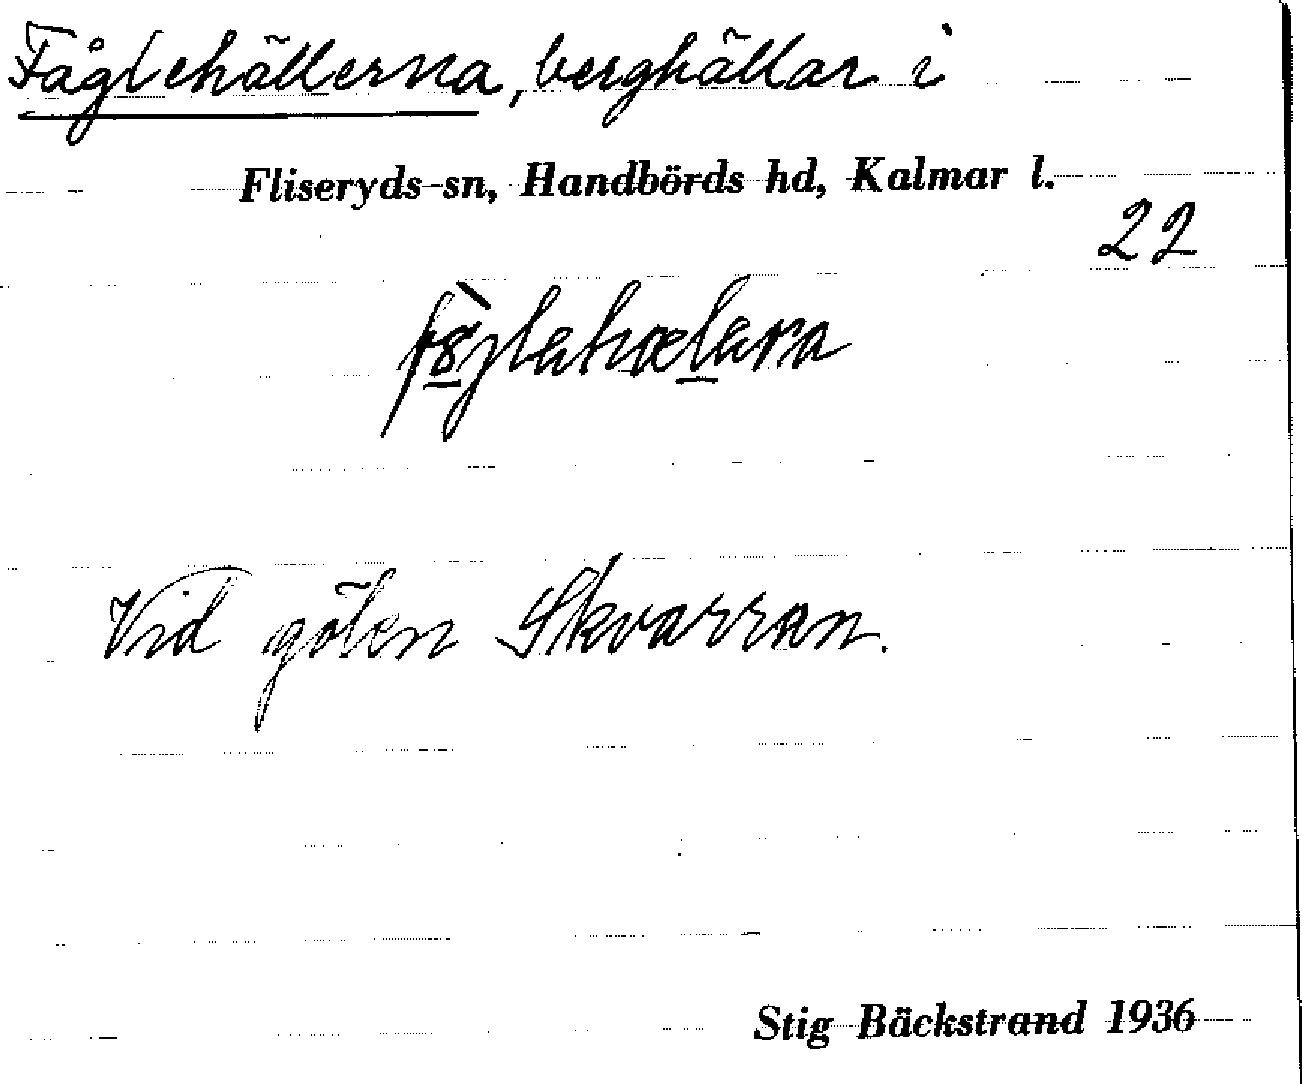 Fåglehällerna, berghällar i
Fliseryds sn, Handbörds hd, Kalmar l.
22
Vid gölen Skvarran.
Stig Bäckstrand 1936